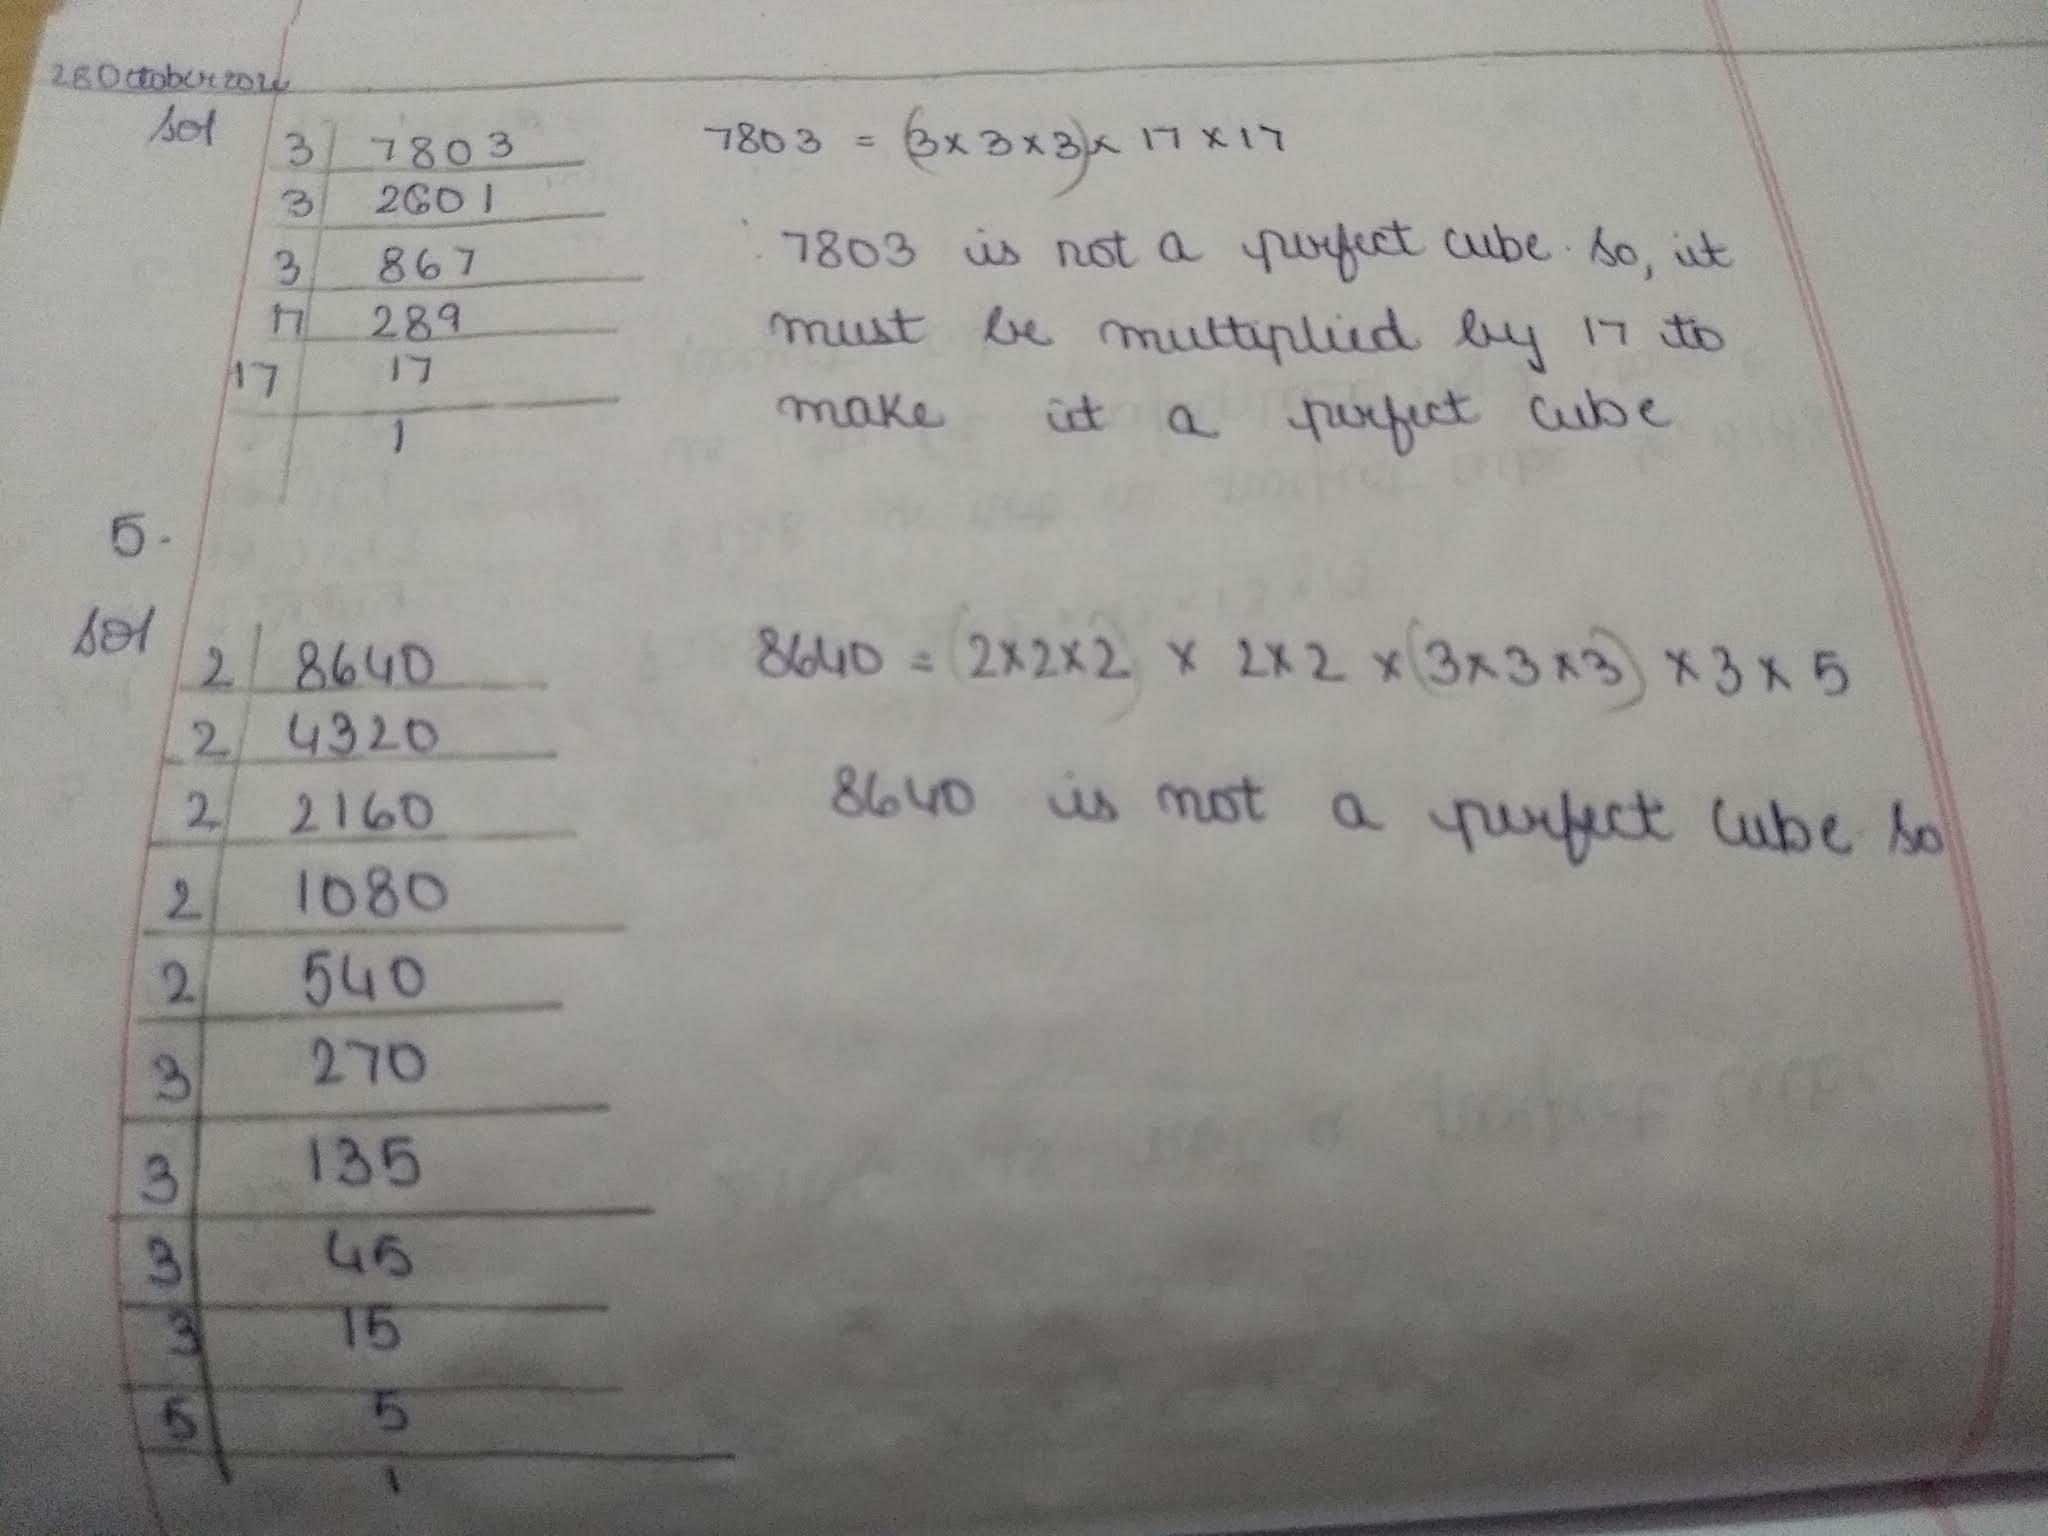 28 October 2024
Sol
3 | 7803
3 | 2601
3 | 867
17 | 289
17 | 17
1
7803 = (3 x 3 x 3) x 17 x 17
7803 is not a perfect cube. So, it
must be multiplied by 17 to
make it a perfect cube
5.
Sol
2 | 8640
2 | 4320
2 | 2160
2 | 1080
2 | 540
3 | 270
3 | 135
3 | 45
3 | 15
5 | 5
1
8640 = (2x2x2) x 2x2 x (3x3x3) x 3 x 5
8640 is not a perfect cube so